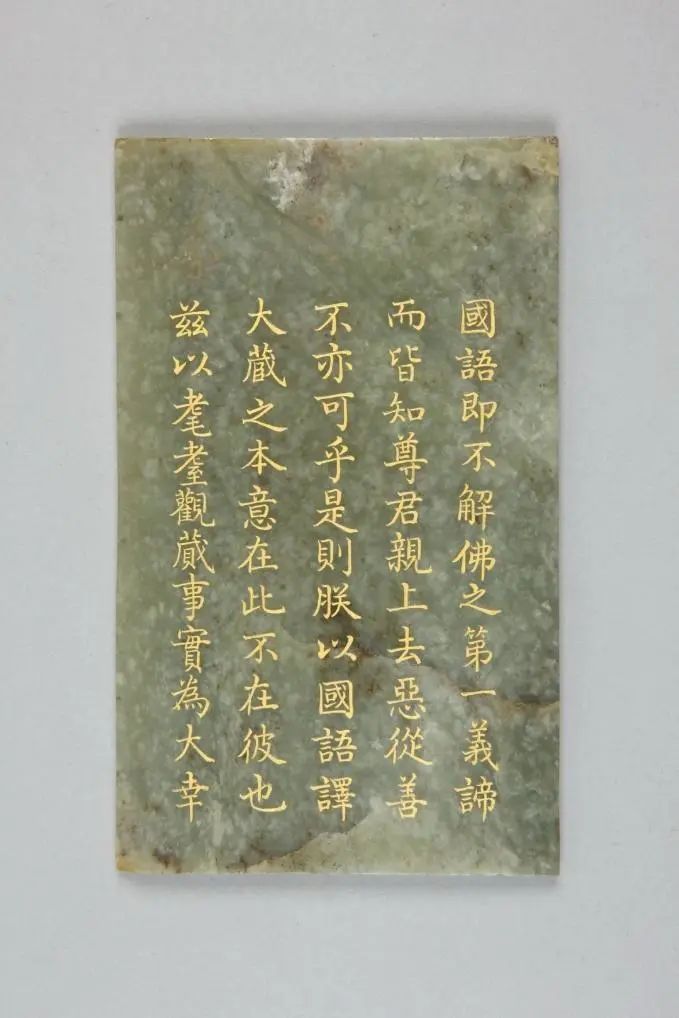 國語即不解佛之第一義諦
而皆知尊君親上去惡從善
不亦可乎是則朕以國語譯
大蔵之本意在此不在彼也
兹以耄耋觀蕆事實為大幸